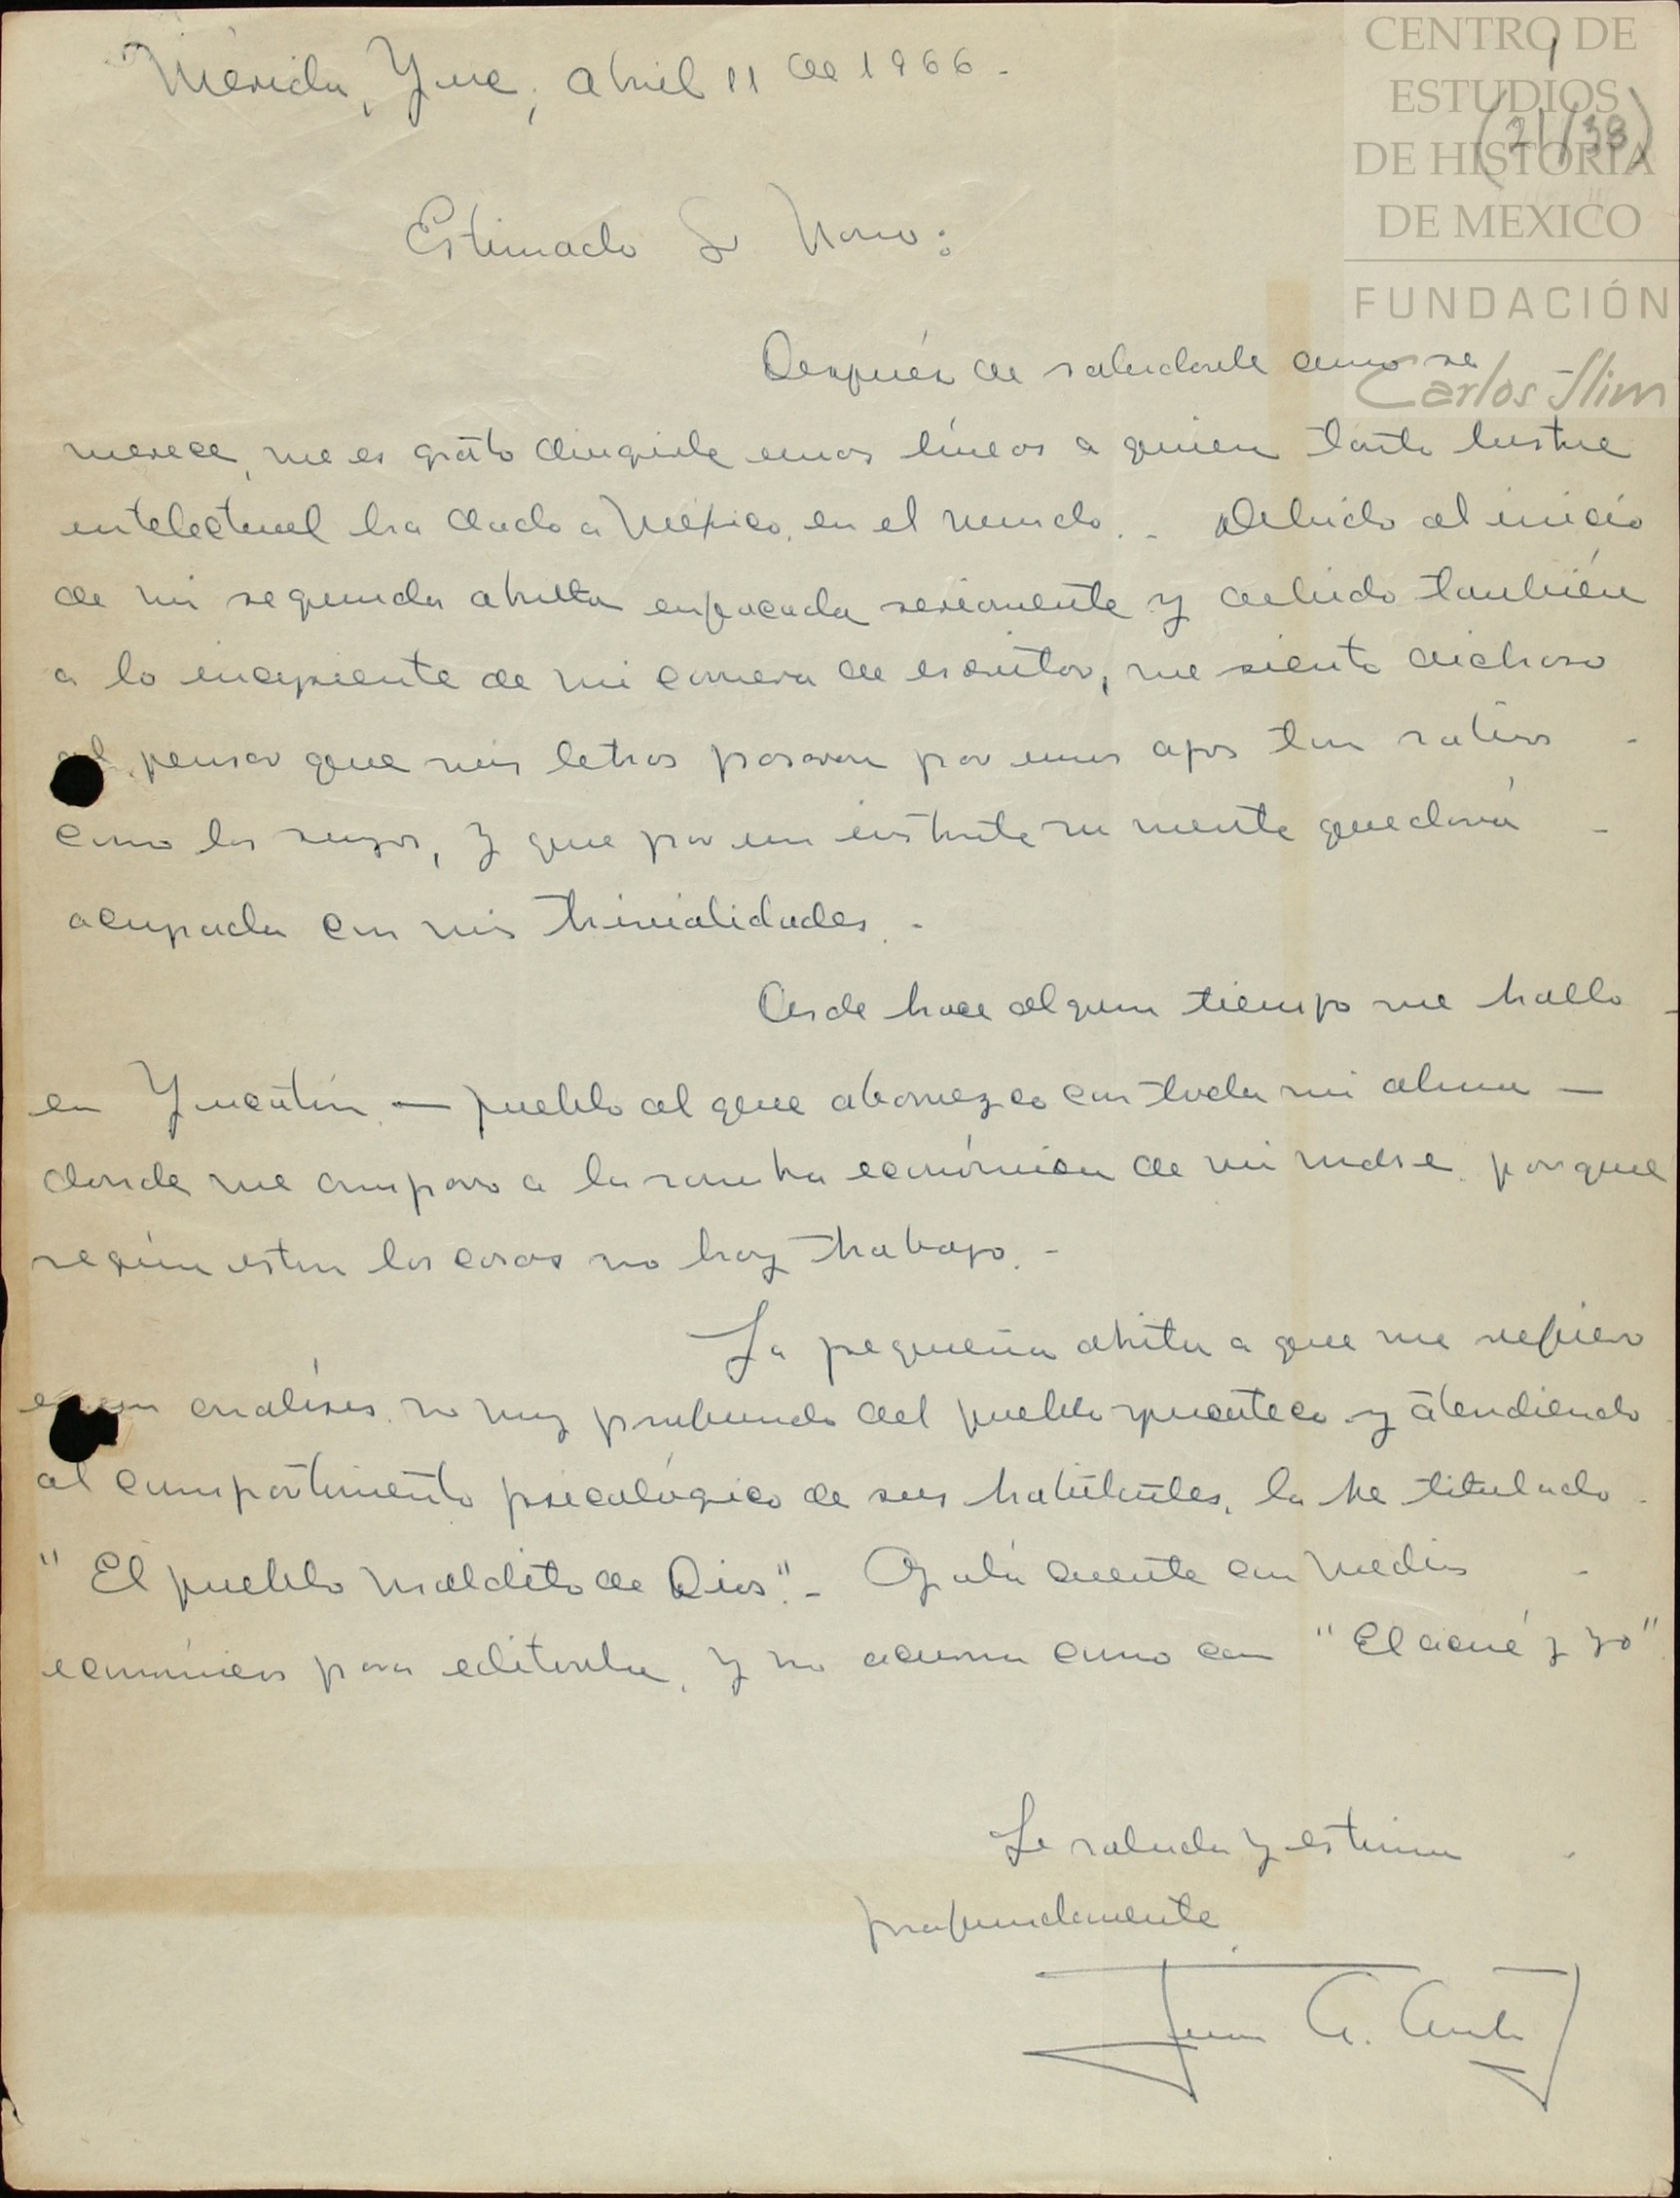 CENTRO DE
ESTUDIOS
DE HISTORIA
DE MEXICO
FUNDACIÓN
Carlos Slim
(21/38)
Mérida, Yuc, abril 11 de 1966.-
Estimado Sr Novo:
Después de saludarle como se
merece, me es grato dirigirle unas líneas a quien tanto lustre
intelectual ha dado a México, en el mundo.- Debido al inicio
de mi segunda obrita enfocada seriamente y debido también
a lo incipiente de mi carrera de escritor, me siento dichoso
al pensar que mis letras pasaran por unos ojos tan sabios
como los suyos, y que por un instante su mente quedará
ocupada con mis trivialidades.-
Desde hace algun tiempo me hallo
en Yucatán — pueblo al que aborrezco con toda mi alma —
donde me amparo a la sombra económica de mi madre, porque
según estan las cosas no hay trabajo.-
La pequeña obrita a que me refiero
es un análisis no muy profundo del pueblo yucateco y atendiendo
al comportimento psicológico de sus habitantes, la he titulado
"El pueblo maldito de Dios".- Ojalá cuente con medios
económicos para editarla, y no ocurra como con "El y yo"
Le saluda y estima
profundamente
Juan A.